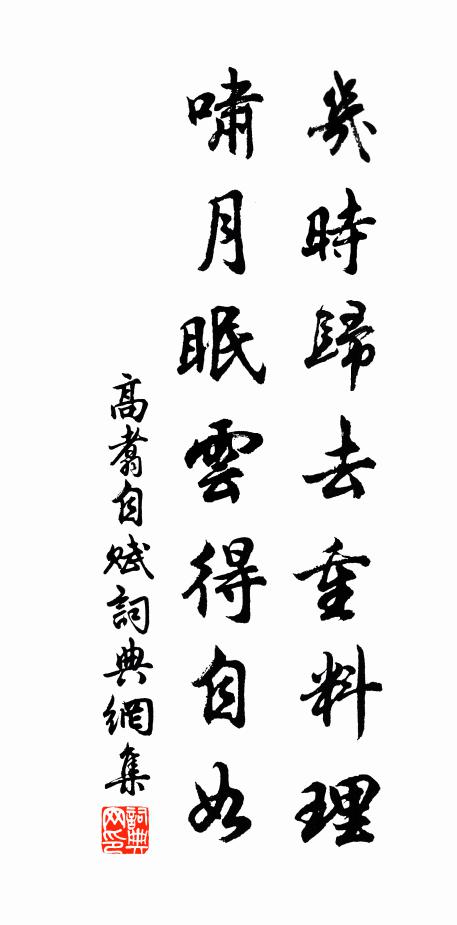 幾時歸去重料理
嘯月眠雲得自如
高翥自賦詞典網集
詞典
网印